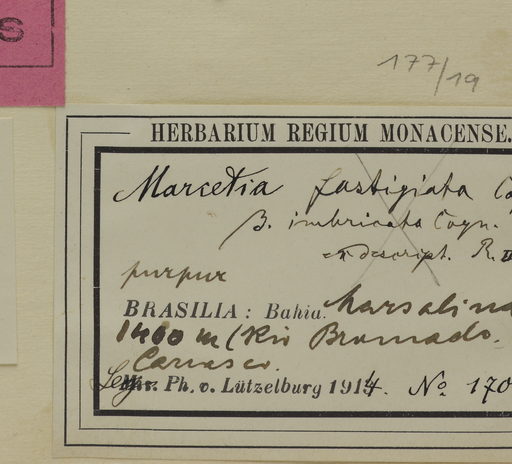 S
177/19
HERBARIUM REGIUM MONACENSE.
Marcetia fastigiata Co
β. imbricata Cogn.
descript. R.
purpur
BRASILIA: Bahia. Marsalina
1400 m (Rio Brumado.
Carrasco.
Leg. Ph. v. Lützelburg 1914. No. 170